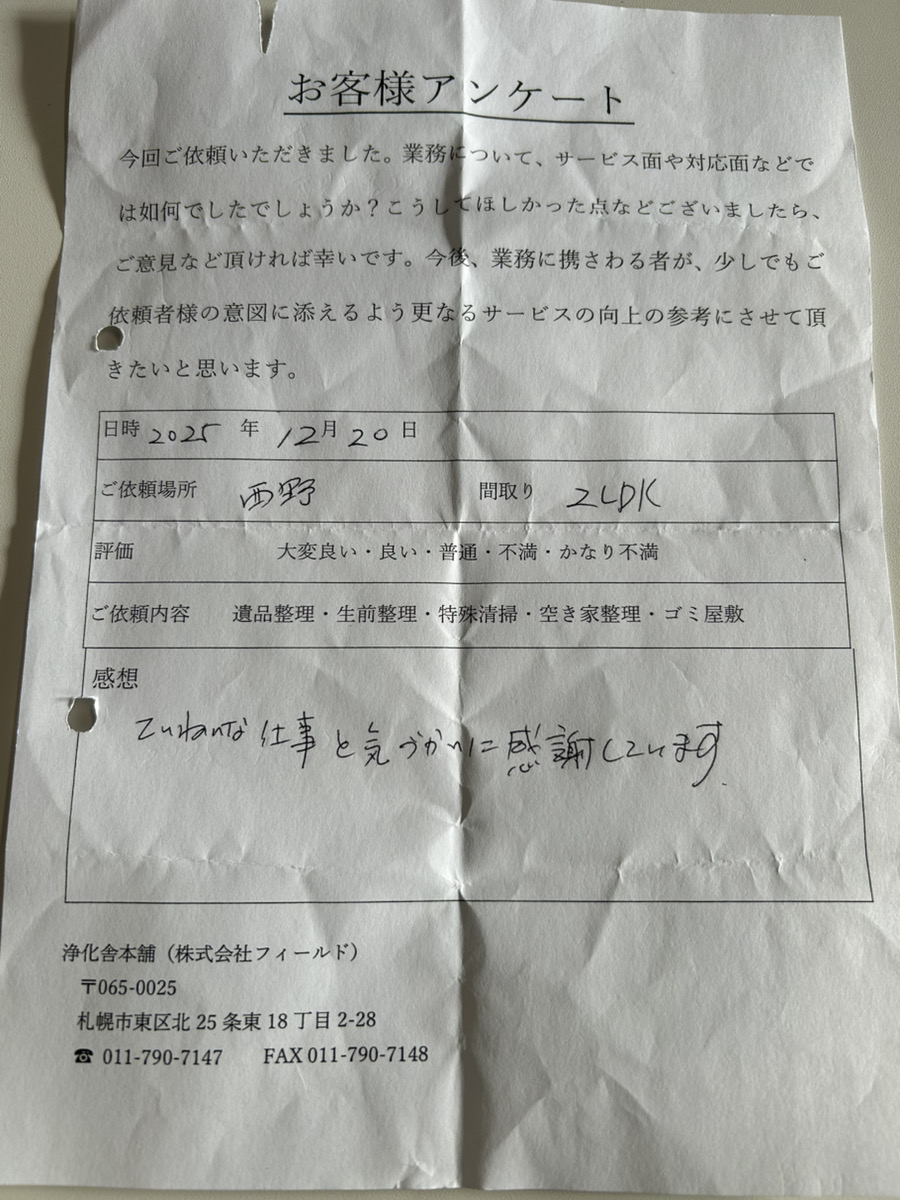 お客様アンケート
今回ご依頼いただきました。業務について、サービス面や対応面などで
は如何でしたでしょうか？こうしてほしかった点などございましたら、
ご意見など頂ければ幸いです。今後、業務に携さわる者が、少しでもご
依頼者様の意図に添えるよう更なるサービスの向上の参考にさせて頂
きたいと思います。
日時 2025 年 12月 20 日
ご依頼場所 西野 間取り 2LDK
評価 大変良い・良い・普通・不満・かなり不満
ご依頼内容 遺品整理・生前整理・特殊清掃・空き家整理・ゴミ屋敷
感想
ていねいな仕事と気づかいに感謝しています
浄化舎本舗（株式会社フィールド）
〒065-0025
札幌市東区北 25 条東 18 丁目 2-28
☎ 011-790-7147 FAX 011-790-7148